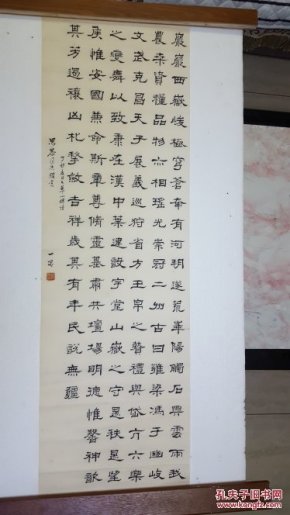 巖巖西嶽峻極穹蒼奄有河朔遂荒華陽觸石興雲雨我
農桑資糧品物亦相瑤光崇冠二州古曰雍梁馮于豳岐
文武克昌天子展義巡狩省方玉帛之贄禮與岱亢六樂
之變舞以致康在漢中葉建設宇堂山嶽之守是秩是望
侯惟安國兼命斯章尊脩靈基肅共壇場明德惟馨神歆
其芳遏禳凶札揫斂吉祥歲其有年民說無疆
孔夫子旧书网